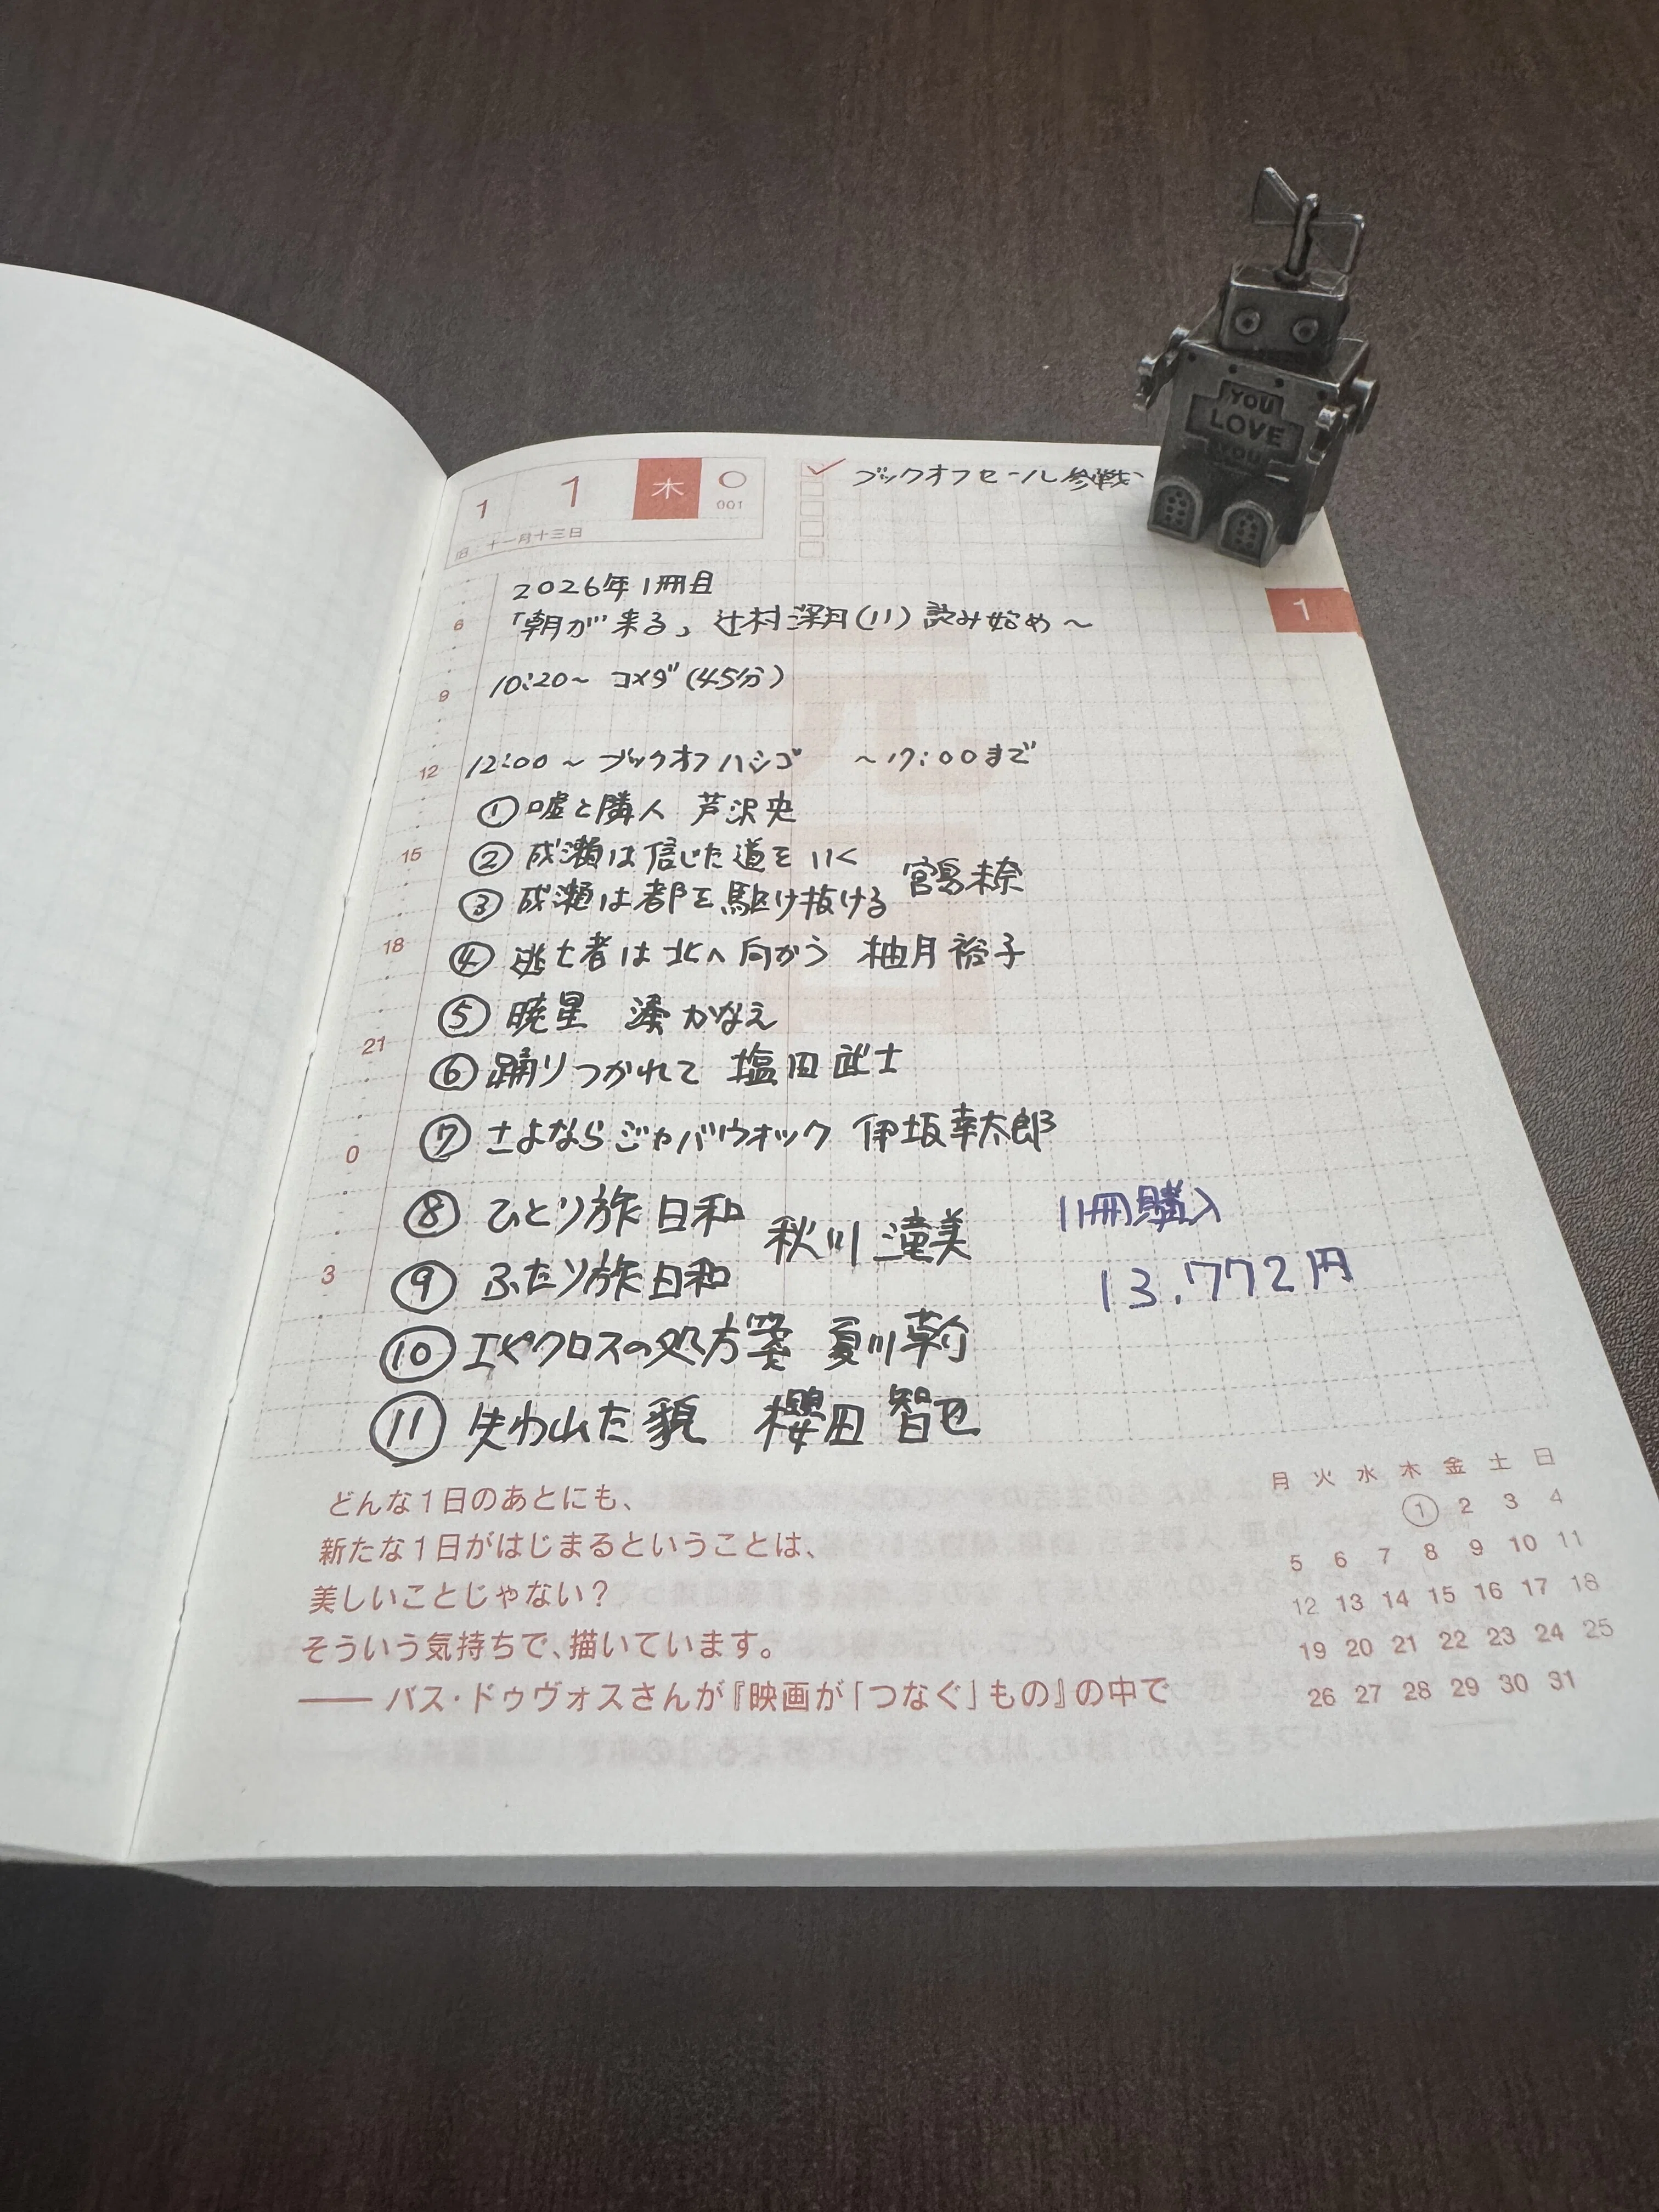 1 1 木 001
旧:十一月十三日
ブックオフセール参戦
YOU
LOVE
YOU
1
2026年1冊目
「朝が来る」辻村深月(11) 読み始め〜
10:20〜 コメダ(45分)
12:00〜ブックオフハシゴ 〜17:00まで
①嘘と隣人 芦沢央
②成瀬は信じた道をいく
③成瀬は都を駆け抜ける
宮島未奈
④逃亡者は北へ向かう 柚月裕子
⑤暁星 湊かなえ
⑥踊りつかれて 塩田武士
⑦さよならジャバウォック 伊坂幸太郎
⑧ひとり旅日和
⑨ふたり旅日和
秋川滝美
⑩エピクロスの処方箋 夏川草介
⑪失われた貌 櫻田智也
11冊購入
13.772円
6
9
12
15
18
21
0
3
どんな1日のあとにも、
新たな1日がはじまるということは、
美しいことじゃない?
そういう気持ちで、描いています。
── バス・ドゥヴォスさんが『映画が「つなぐ」もの』の中で
月 火 水 木 金 土 日
1 2 3 4
5 6 7 8 9 10 11
12 13 14 15 16 17 18
19 20 21 22 23 24 25
26 27 28 29 30 31